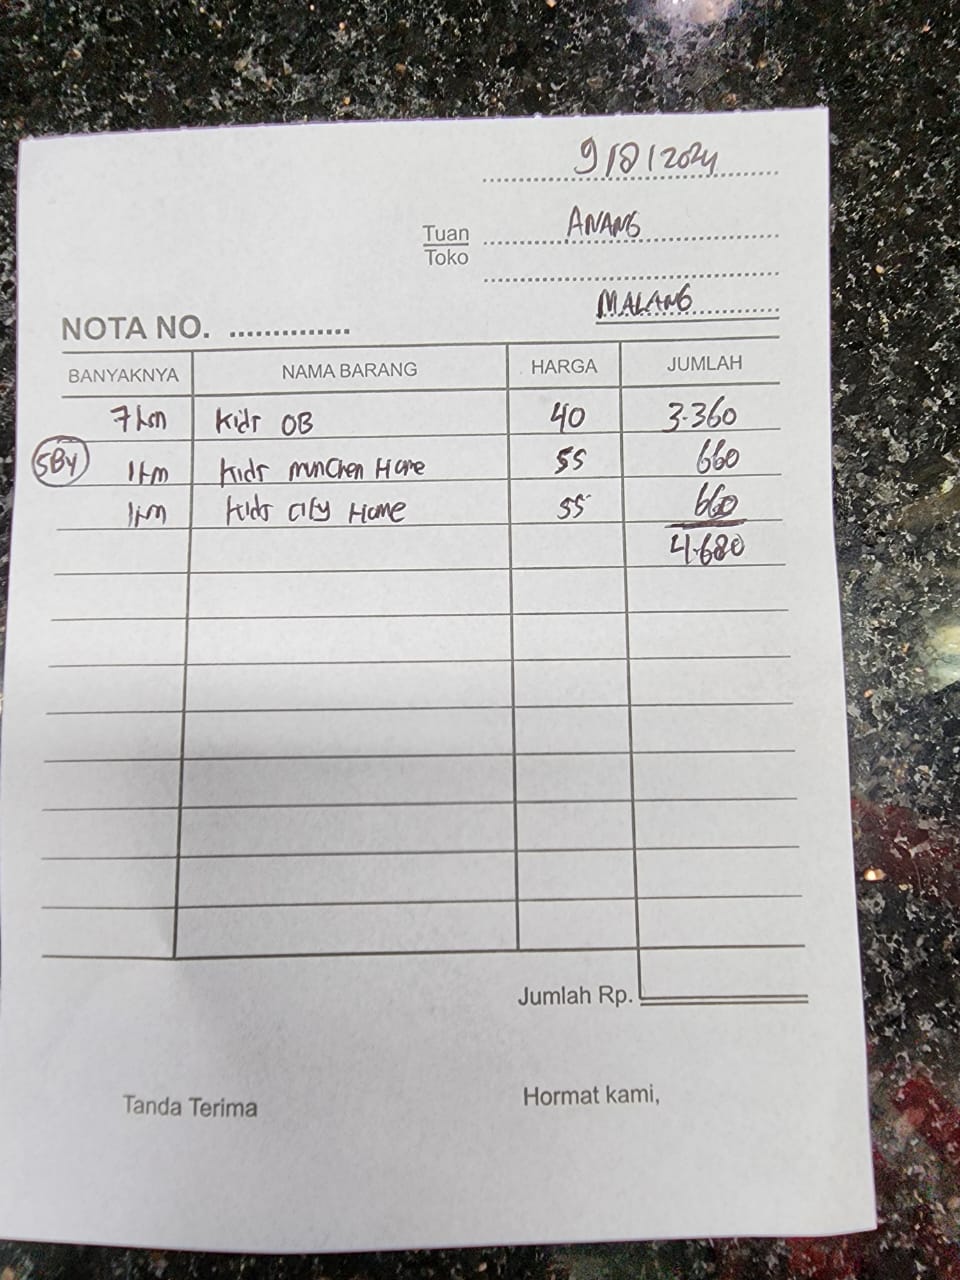 9/8/2024
Tuan ANANG
Toko
MALANG
NOTA NO. ..............
BANYAKNYA NAMA BARANG HARGA JUMLAH
7 Kids OB 40 3.360
SBY 1 Kids Munchen Home 55 660
1 Kids City Home 55 660
4.680
Jumlah Rp.
Tanda Terima Hormat kami,